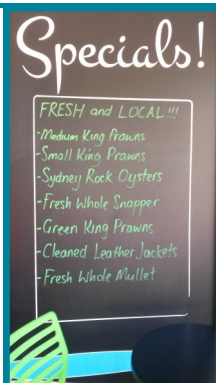 Specials!
FRESH and LOCAL!!!
-Medium King Prawns
-Small King Prawns
-Sydney Rock Oysters
-Fresh Whole Snapper
-Green King Prawns
-Cleaned Leather Jackets
-Fresh Whole Mullet